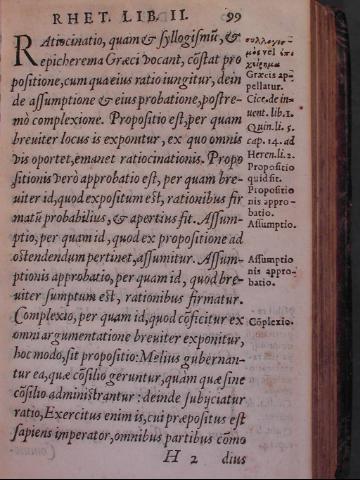 RHET. LIB. II. 99
RAtiocinatio, quam & syllogismũ, &
epicherema Græci vocant, cõstat pro
positione, cum qua eius ratio iungitur, dein
de assumptione & eius probatione, postre-
mò complexione. Propositio est, per quam
breuiter locus is exponitur, ex quo omnis
vis oportet, emanet ratiocinationis. Propo
sitionis verò approbatio est, per quam bre-
uiter id, quod expositum est, rationibus fir
matũ probabilius, & apertius fit. Assum-
ptio, per quam id, quod ex propositione ad
ostendendum pertinet, assumitur. Assum-
ptionis approbatio, per quam id, quod bre-
uiter sumptum est, rationibus firmatur.
Complexio, per quam id, quod cõficitur ex
omni argumentatione breuiter exponitur,
hoc modo, sit propositio: Melius gubernan-
tur ea, quæ cõsilio geruntur, quàm quæ sine
cõsilio administrantur: deinde subijciatur
ratio, Exercitus enim is, cui præpositus est
sapiens imperator, omnibus partibus cõmo
H 2 dius
συλλογισ-
μὸς vel ἐπι
χείρημα
Græcis ap-
pellatur.
Cice. de in-
uent. lib. 1.
Quin. li. 5.
cap. 14. ad
Heren. li. 2.
Propositio
quid sit.
Propositio
nis appro-
batio.
Assumptio.
Assumptio
nis appro-
batio.
Cõplexio.